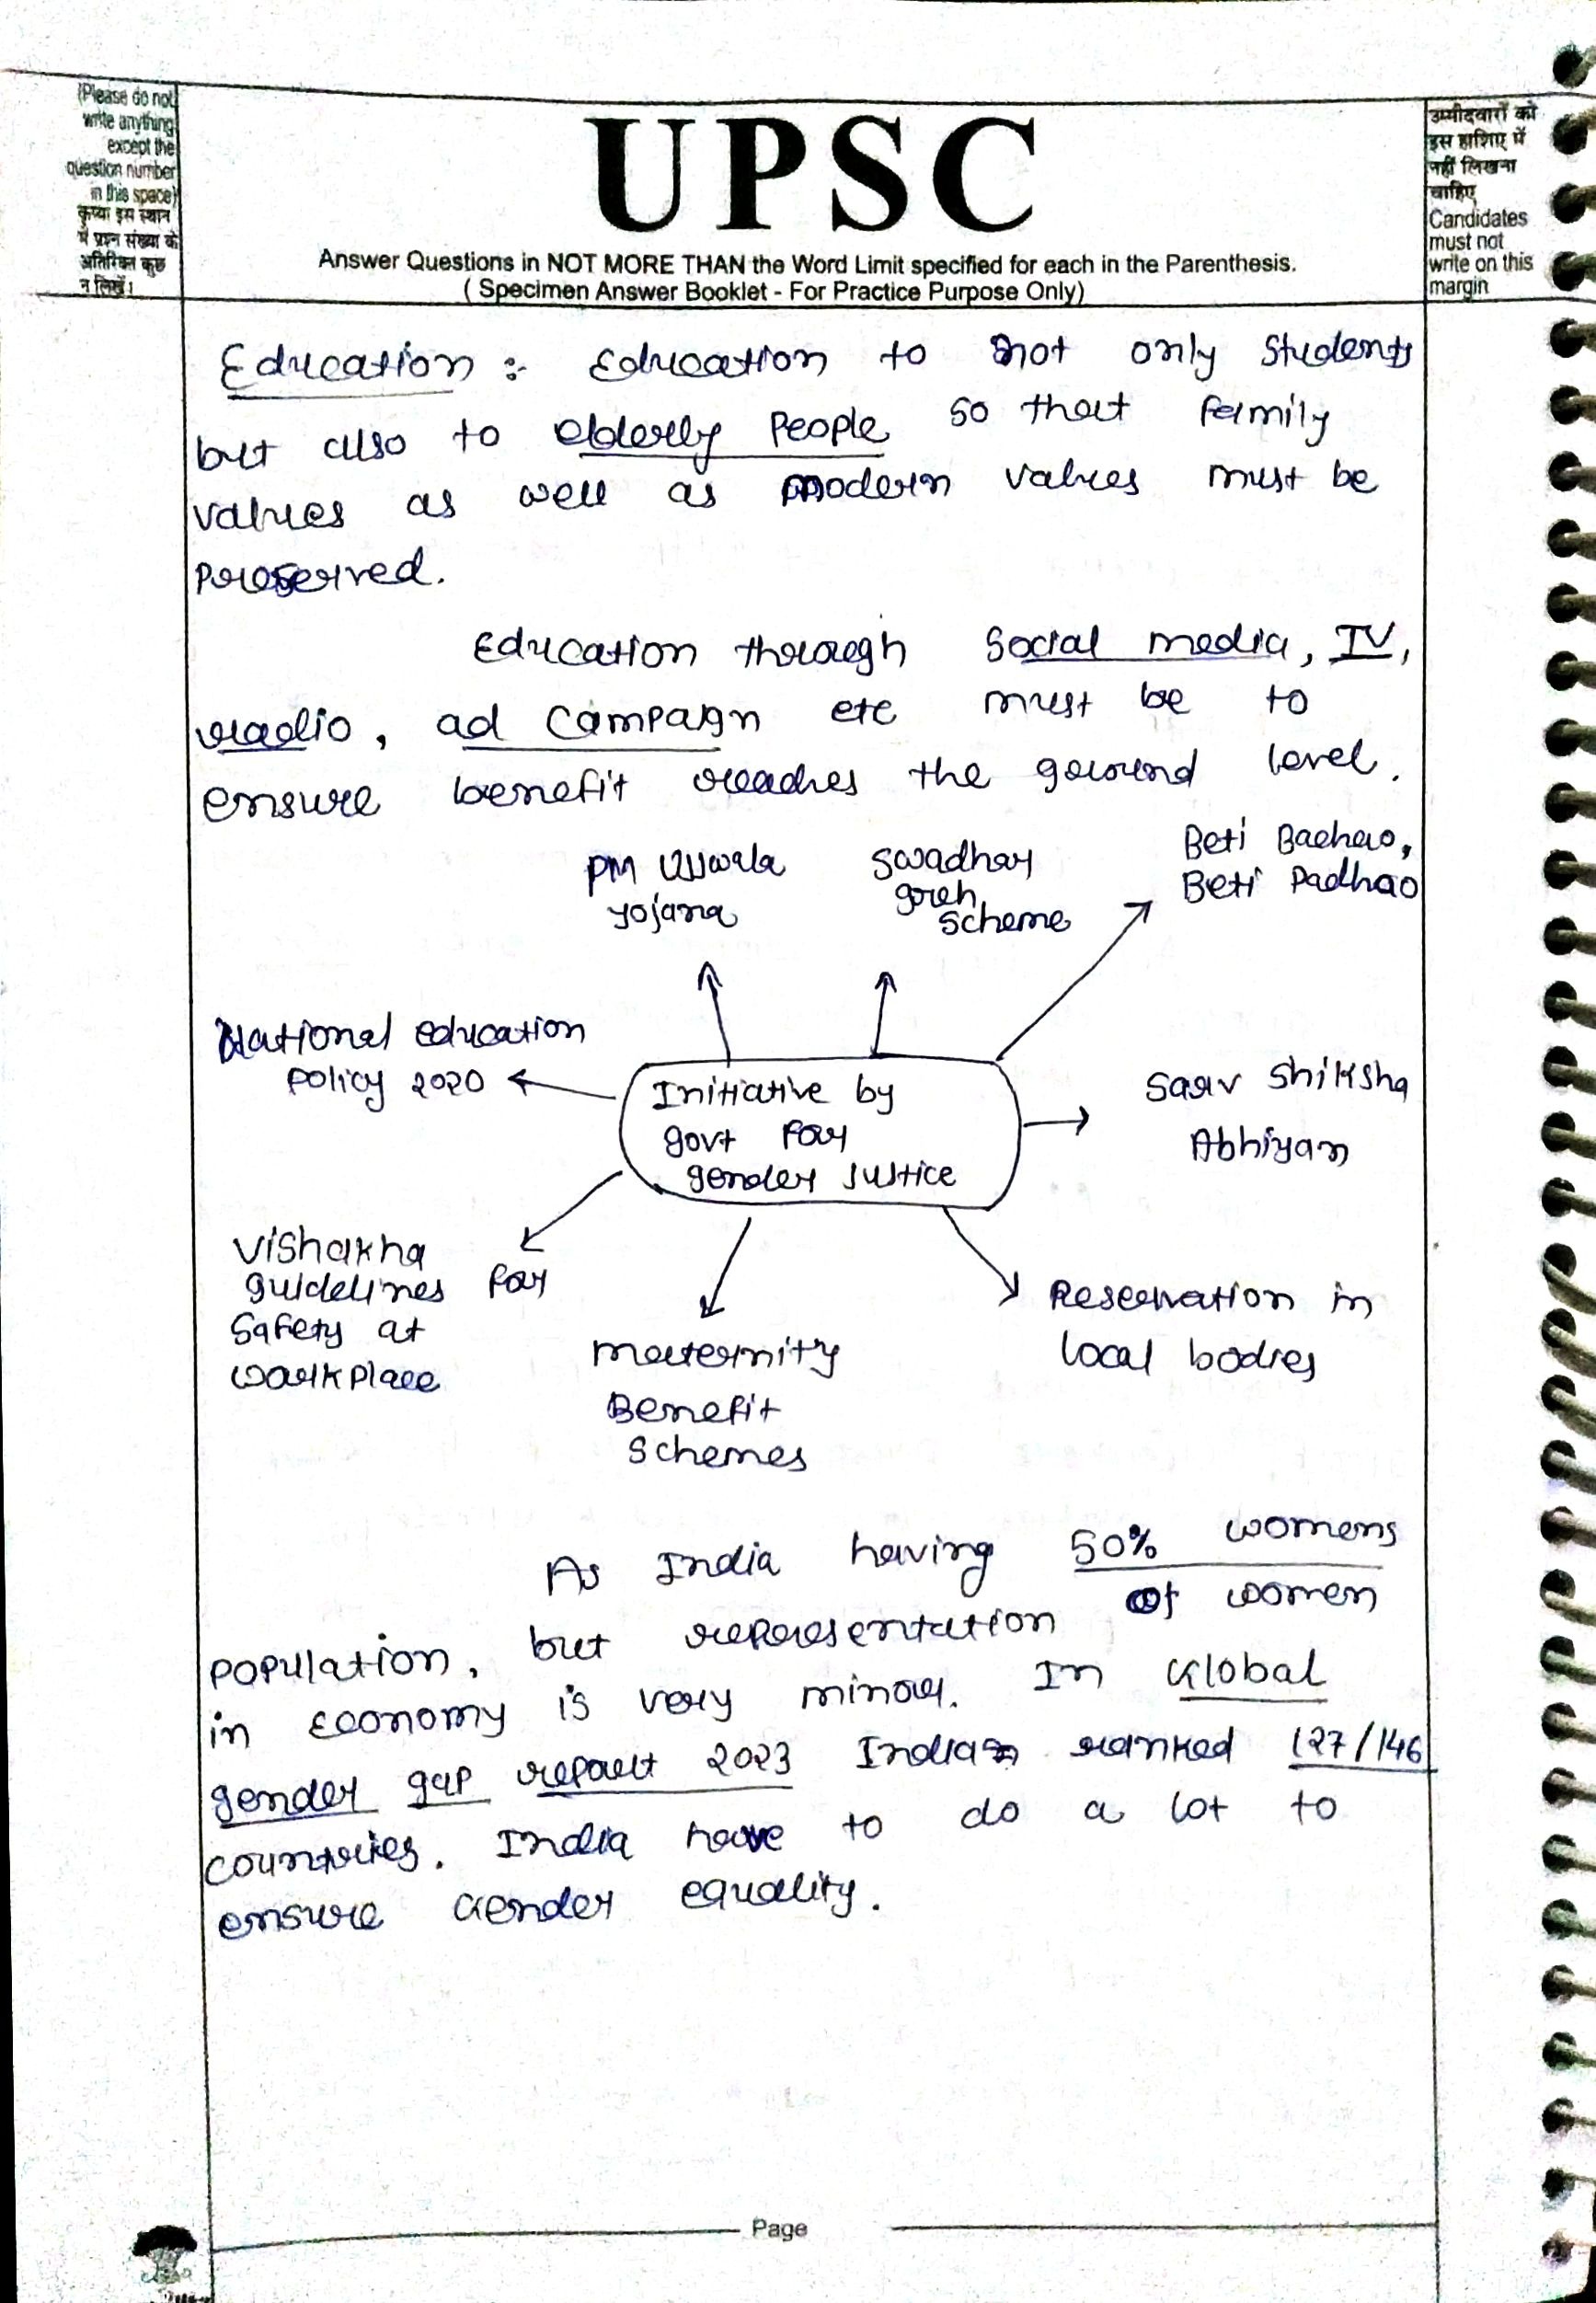 (Please do not
write anything
except the
question number
in this space)
कृप्या इस स्थान
में प्रश्न संख्या के
अतिरिक्त कुछ
न लिखें।
UPSC
Answer Questions in NOT MORE THAN the Word Limit specified for each in the Parenthesis.
( Specimen Answer Booklet - For Practice Purpose Only)
उम्मीदवारों को
इस हाशिए में
नहीं लिखना
चाहिए
Candidates
must not
write on this
margin
Education :- Education to not only students
but also to elderly people so that family
values as well as modern values must be
preserved.
Education through social media, TV,
radio, ad campaign etc must be to
ensure benefit reaches the ground level.
PM Ujjwala
yojana
Swadhar
greh
scheme
Beti Bachao,
Beti Padhao
National education
policy 2020
Initiative by
govt for
gender justice
Sarv Shiksha
Abhiyan
Vishakha
guidelines for
Safety at
workplace
maternity
Benefit
schemes
Reservation in
local bodies
As India having 50% womens
population, but representation of women
in economy is very minor. In Global
gender gap report 2023 India ranked 127/146
countries. India have to do a lot to
ensure Gender equality.
Page